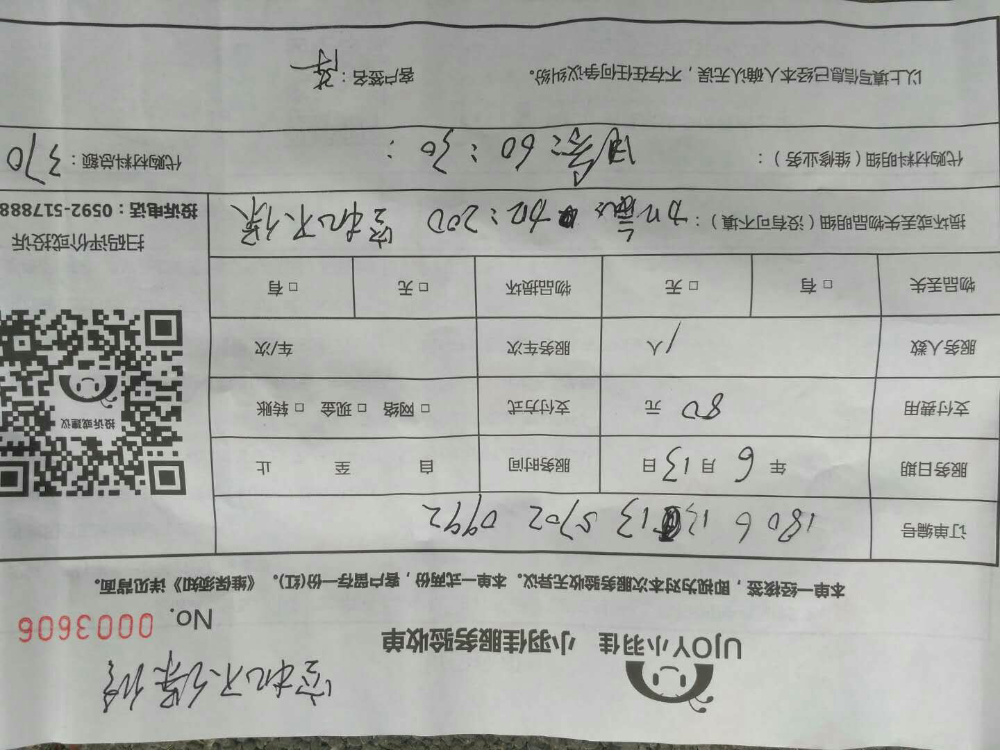 空机不保修
UJOY小羽佳 小羽佳服务验收单
No. 0003606
本单一经接签，即视为对本次服务验收无异议。本单一式两份，客户留存一份(红)。《维保须知》详见背面。
订单编号 5702 0992
服务日期 年 6 月 13 日 服务时间 自 至 止
支付费用 80 元 支付方式 □ 网络 □ 现金 □ 转账
服务人数 1 人 服务车次 车/次
物品丢失 □ 有 □ 无 物品损坏 □ 无 □ 有
投诉或建议
扫码评价或投诉
投诉电话：0592-517888
损坏或丢失物品明细（没有可不填）： 加氟 加：200 空机不保
代购材料明细（维修业务）： 60：30： 代购材料总额：370
以上填写信息已经本人确认无误，不存在任何争议纠纷。 客户签名：